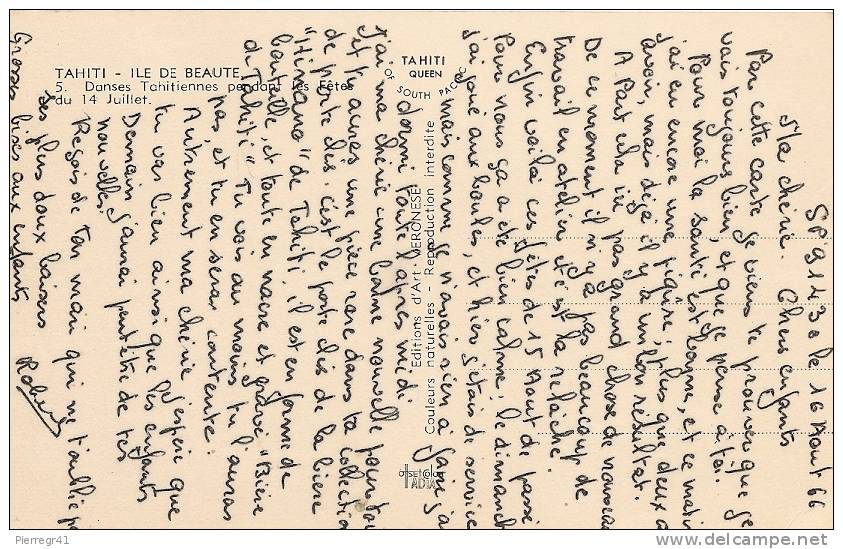 TAHITI - ILE DE BEAUTE
5. Danses Tahitiennes pendant les Fêtes
du 14 Juillet.
TAHITI
QUEEN
OF SOUTH PACIFIC
Editions d'Art VERONESE
Couleurs naturelles - Reproduction interdite
OFSET COLOR
TADIA
SP 91430 le 16 Aout 66
Ma cherie. Chers enfants
Par cette carte je viens te prouver que je
vais toujours bien, et que je pense à toi.
Pour moi la santé est bonne, et ce matin
j'ai eu encore une piqûre; plus que deux a
avoir, mais déjà il y a un bon résultat.
A part cela ici pas grand chose de nouveau
De ce moment il n'y a pas beaucoup de
travail en atelier et c'est la relache.
Enfin voilà ces fêtes de 15 Aout de passé
Pour nous ça a été bien calme; le dimanche
j'ai joué aux boules, et hier j'étais de service
mais comme je n'avais rien à faire j'ai
dormi toute l'apres midi.
J'ai ma chérie une bonne nouvelle pour toi
J'et t'aurais une pièce rare dans ta collection
de porte clés. c'est le porte clés de la biere
"Hinano" de Tahiti il est en forme de
bouteille, et toute en nacre et gravé "Bière
de Tahiti" Tu vois au moins tu l'auras
pas, et tu en seras contente.
Autrement ma chérie j'espère que
tu vas bien ainsi que les enfants
Demain j'aurai peut être de tes
nouvelles.
Reçois de ton mari qui ne t'oublie pas
les plus doux baisers
Grosses bises aux enfants
Robert
Pierregr41
delcampe.net